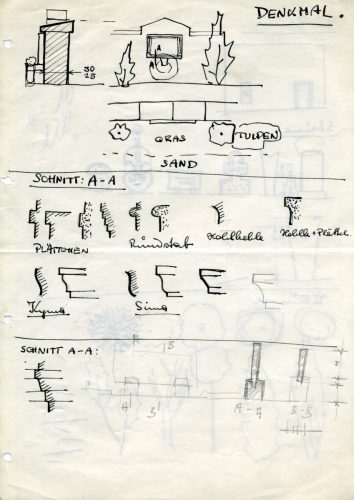 DENKMAL.
A
A
30
25
GRAS
TULPEN
SAND
SCHNITT: A-A
PLÄTTCHEN
Rundstab
Hohlkehle
Kehle + Plättch.
Kyma
Sima
SCHNITT A-A:
B
A
B
A-A
B-B